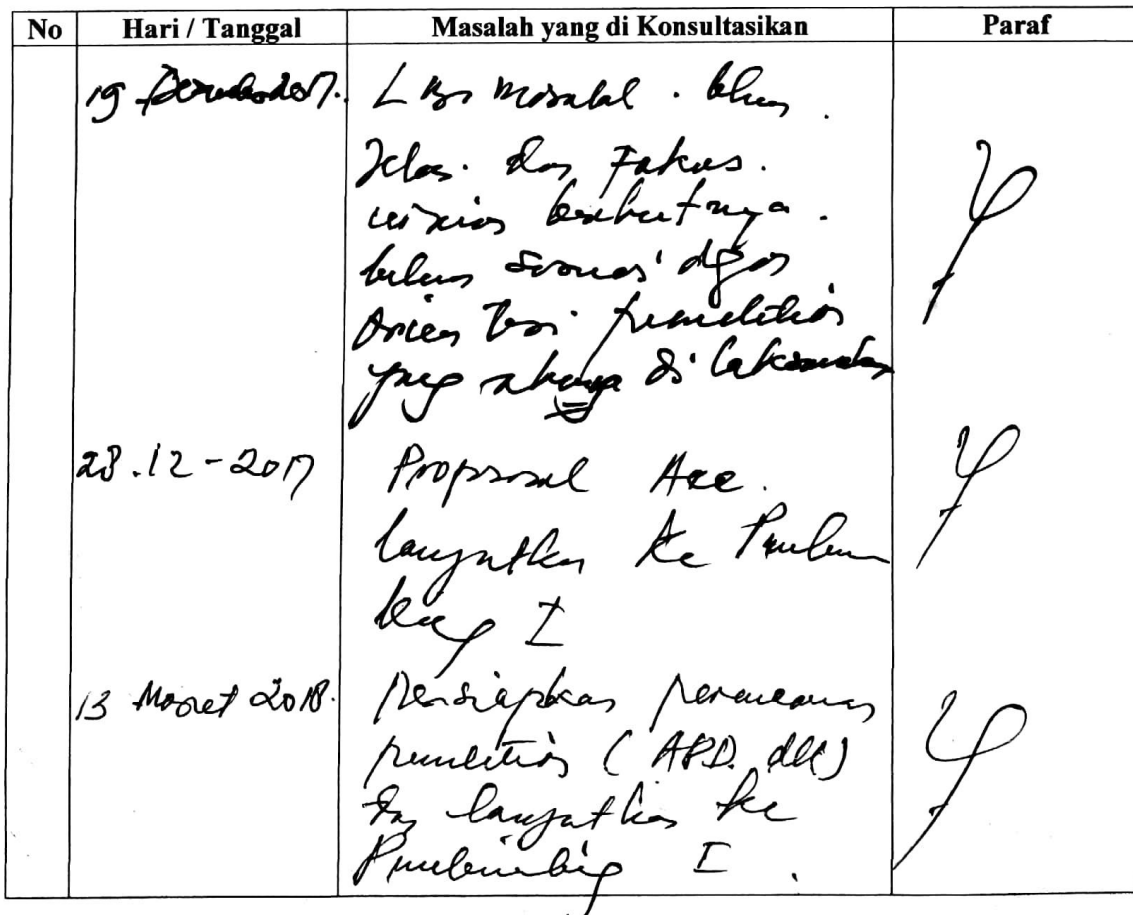 No Hari / Tanggal Masalah yang di Konsultasikan Paraf
19 Desember 2017. L Bs Masalah. blum.
Jelas. dan Fokus.
berikutnya.
belum sesuai dgan
Orien tasi penelitian
yang di laksanakan
28.12-2017 Proposal Acc.
lanjutkan ke Pembim
bing I
13 Maret 2018. Persiapkan
penelitian (APD. dll)
dan lanjutkan ke
Pembimbing I.